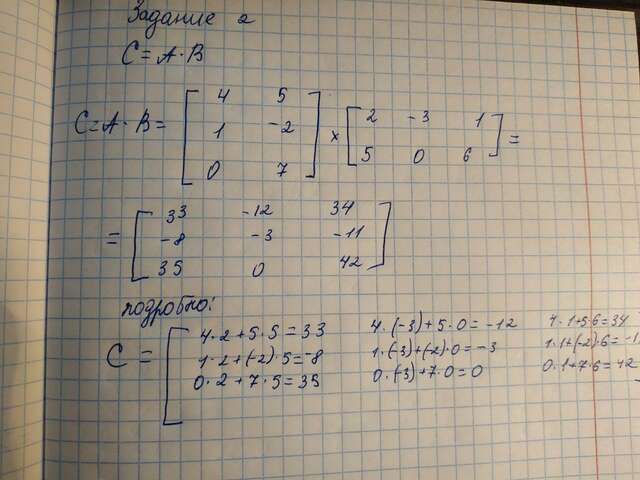 Задание 2
C = A · B
C = A · B = [ 4 5 ] × [ 2 -3 1 ] =
1 -2
0 7
5 0 6
= [ 33 -12 34 ]
-8 -3 -11
35 0 42
подробно:
C = [ 4·2+5·5=33 4·(-3)+5·0=-12 4·1+5·6=34
1·2+(-2)·5=-8 1·(-3)+(-2)·0=-3 1·1+(-2)·6=-1
0·2+7·5=35 0·(-3)+7·0=0 0·1+7·6=42